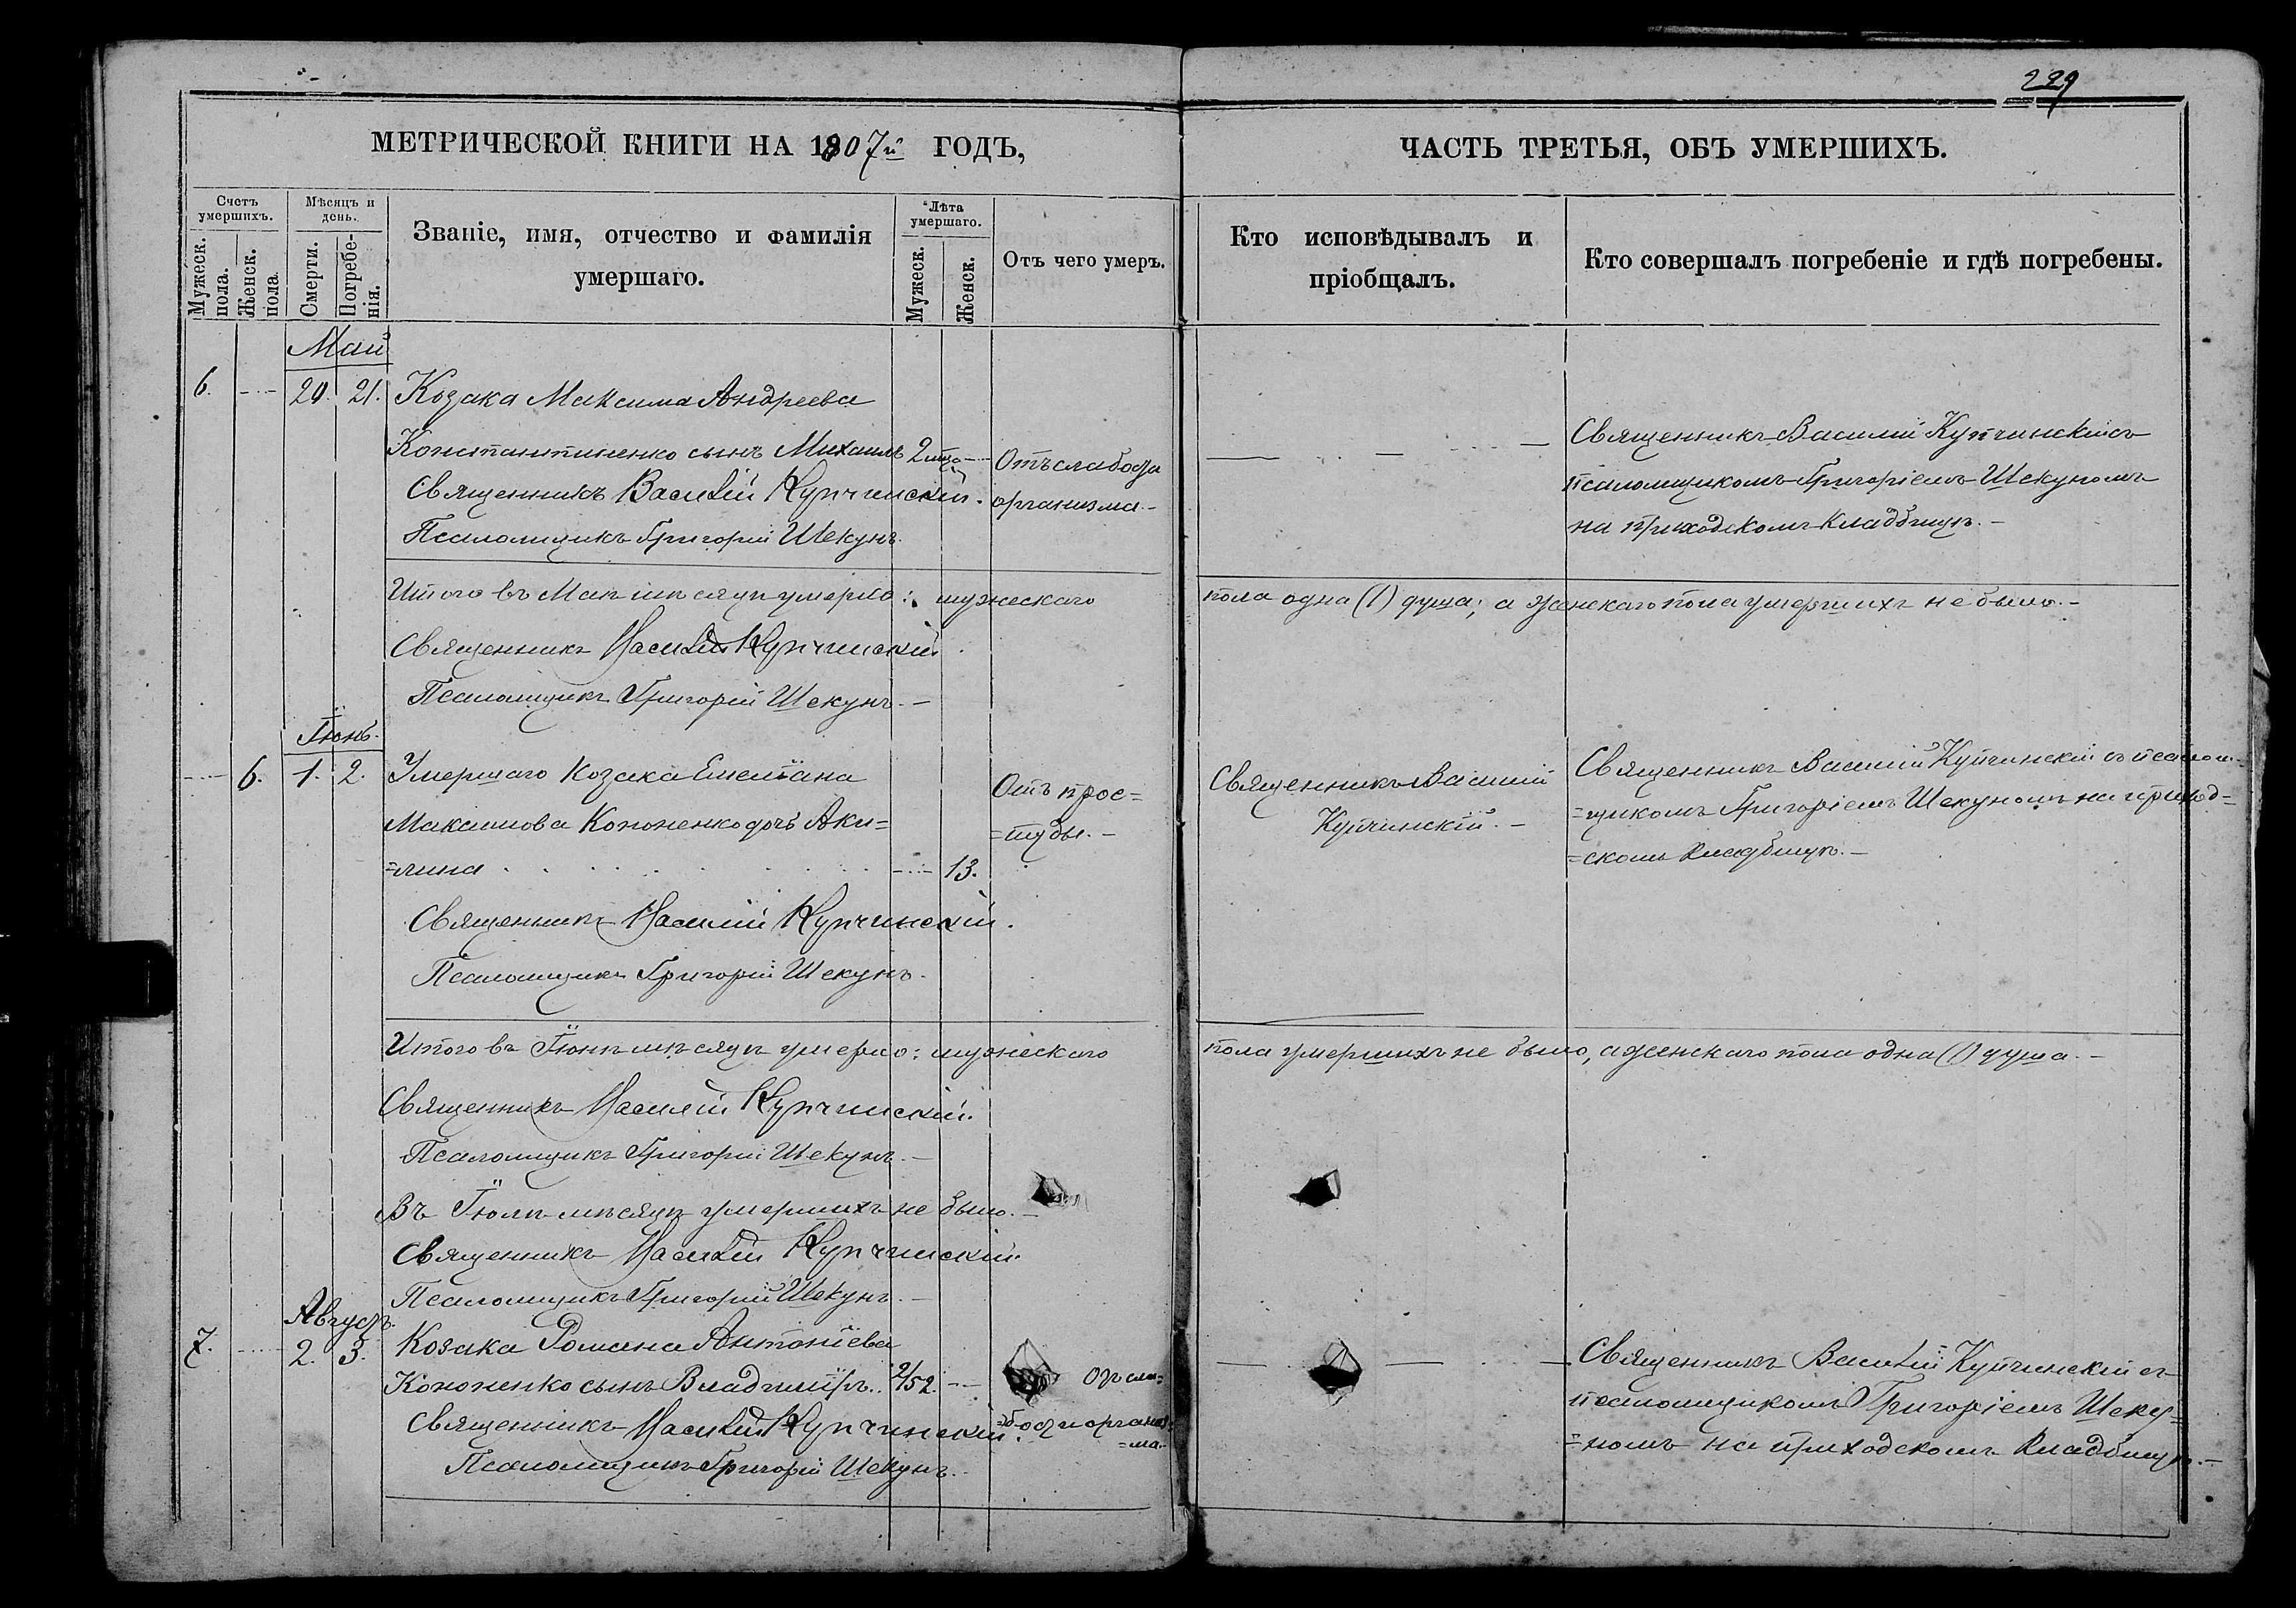 229
МЕТРИЧЕСКОЙ КНИГИ НА 1907й ГОДЪ,
Счетъ умершихъ.
Мужеск. пола.
Женск. пола
Мѣсяцъ и день.
Смерти.
Погребенія.
Званіе, имя, отчество и фамилія
умершаго.
Лѣта умершаго.
Мужеск.
Женск.
Отъ чего умеръ.
Май
6. 20. 21. Козака Максима Андреева
Константиненко сынъ Михаилъ 2 мца Отъ слабости
Священникъ Василій Купчинскій. организма.-
Псаломщикъ Григорій Шекунъ.
Итого въ Маѣ мѣсяцѣ умерло: мужескаго
Священникъ Василій Купчинскій.
Псаломщикъ Григорій Шекунъ.-
Іюнь.
6. 1. 2. Умершаго Козака Емеліана Отъ прос=
Максимова Кононенко дочь Аки= =туды.-
=лина 13.
Священникъ Василій Купчинскій.
Псаломщикъ Григорій Шекунъ.
Итого въ Іюнѣ мѣсяцѣ умерло: мужескаго
Священникъ Василій Купчинскій.
Псаломщикъ Григорій Шекунъ.-
Въ Іюлѣ мѣсяцѣ умершихъ не было.-
Священникъ Василій Купчинскій.
Псаломщикъ Григорій Шекунъ.-
Августъ.
7. 2. 3. Козака Романа Антоніева
Кононенко сынъ Владиміръ.. 2/52. Отъ сла=
Священникъ Василій Купчинскій. =бости организ=
=ма.-
Псаломщикъ Григорій Шекунъ.
ЧАСТЬ ТРЕТЬЯ, ОБЪ УМЕРШИХЪ.
Кто исповѣдывалъ и
пріобщалъ.
Кто совершалъ погребеніе и гдѣ погребены.
Священникъ Василій Купчинскій съ
псаломщикомъ Григоріемъ Шекуномъ
на приходскомъ кладбищѣ.-
пола одна (1) душа; а женскаго пола умершихъ не было.-
Священникъ Василій
Купчинскій.-
Священникъ Василій Купчинскій съ псалом=
=щикомъ Григоріемъ Шекуномъ на приход=
=скомъ кладбищѣ.-
пола умершихъ не было, а женскаго пола одна (1) душа.-
Священникъ Василій Купчинскій съ
псаломщикомъ Григоріемъ Шеку=
=номъ на приходскомъ кладбищѣ.-